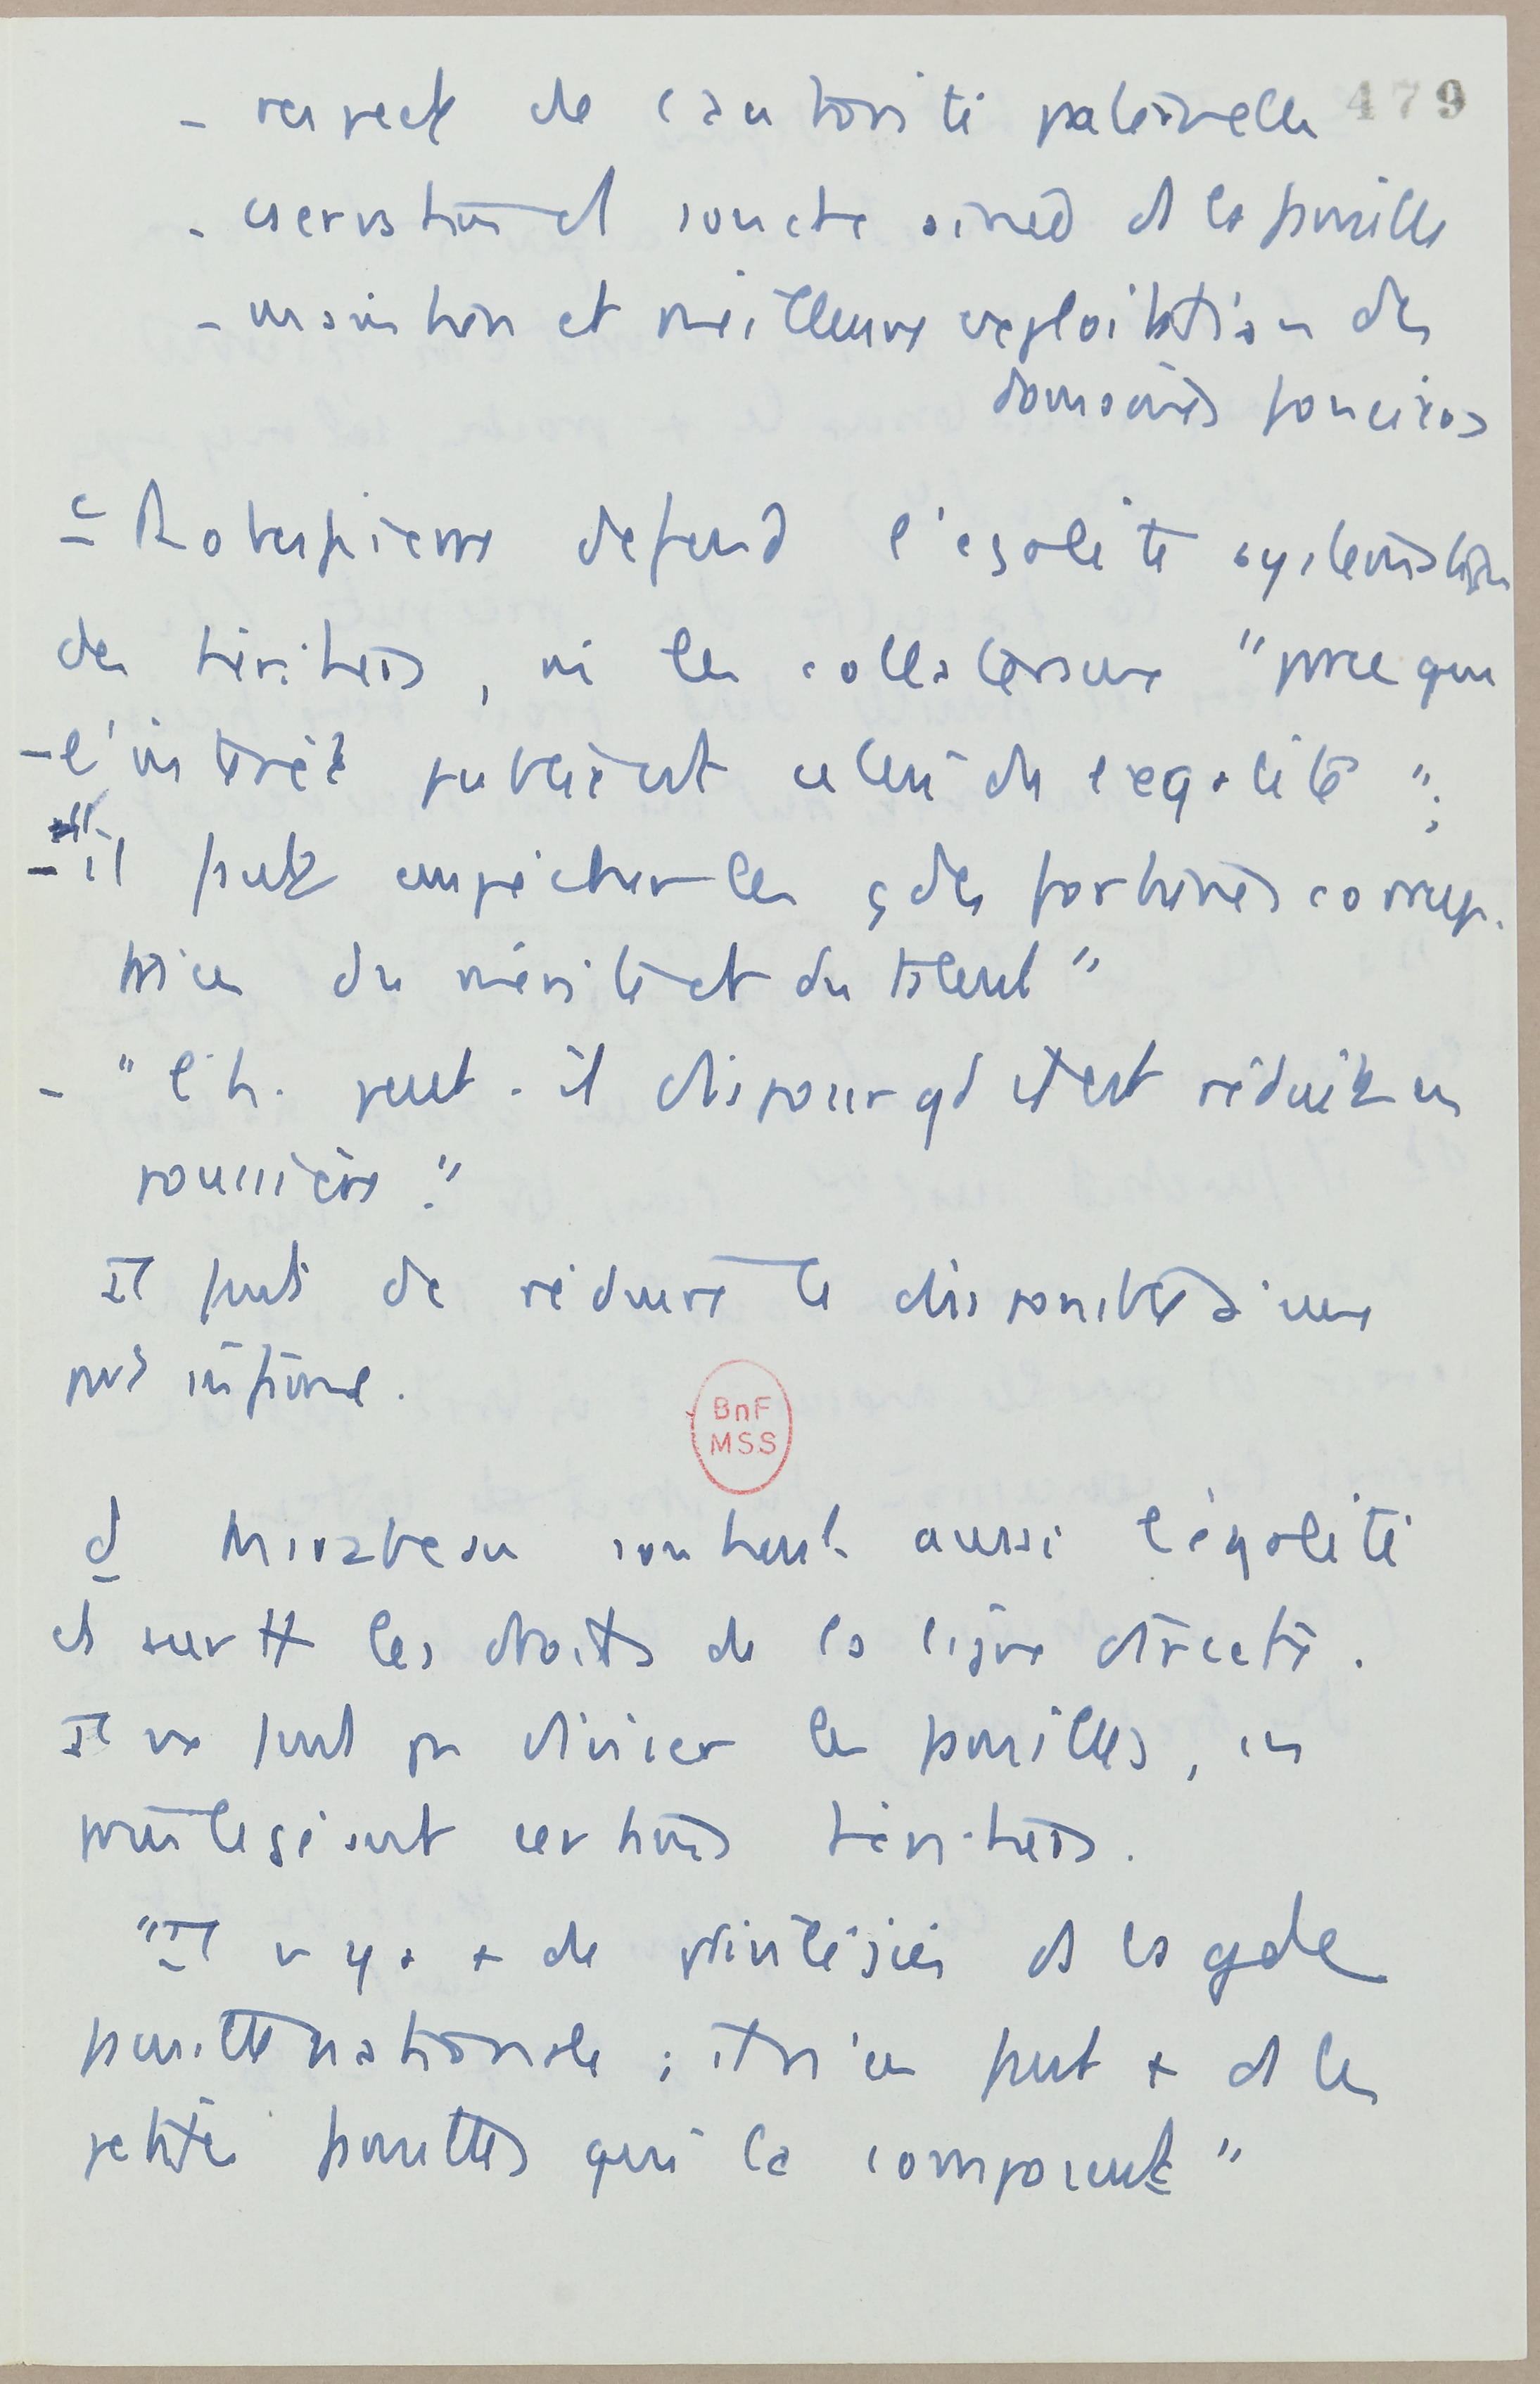 479
- respect de l'autorité paternelle
- conservation et soucte ained ds la famille
- maintien et meilleure exploitation des
domaines fonciers
c Robespierre defend l'égalité systématique
des héritiers, ni les collateraux "parce que
- l'intérêt public est celui de l'egalité";
- "il faut empêcher les gdes fortunes corrup-
trices du mérite et du talent"
- "l'h. peut-il disposer qd il est réduit en
poussière."
Il faut de réduire le disponible à une
part infime.
d Mirabeau soutient aussi l'égalité
et surtt les droits de la ligne directe.
Il ne faut pas diviser les familles, en
privilégiant certains héritiers.
"Il n'y a + de privilégiés ds la gde
famille nationale ; il n'en faut + ds les
petites familles qui la composent"
BnF
MSS